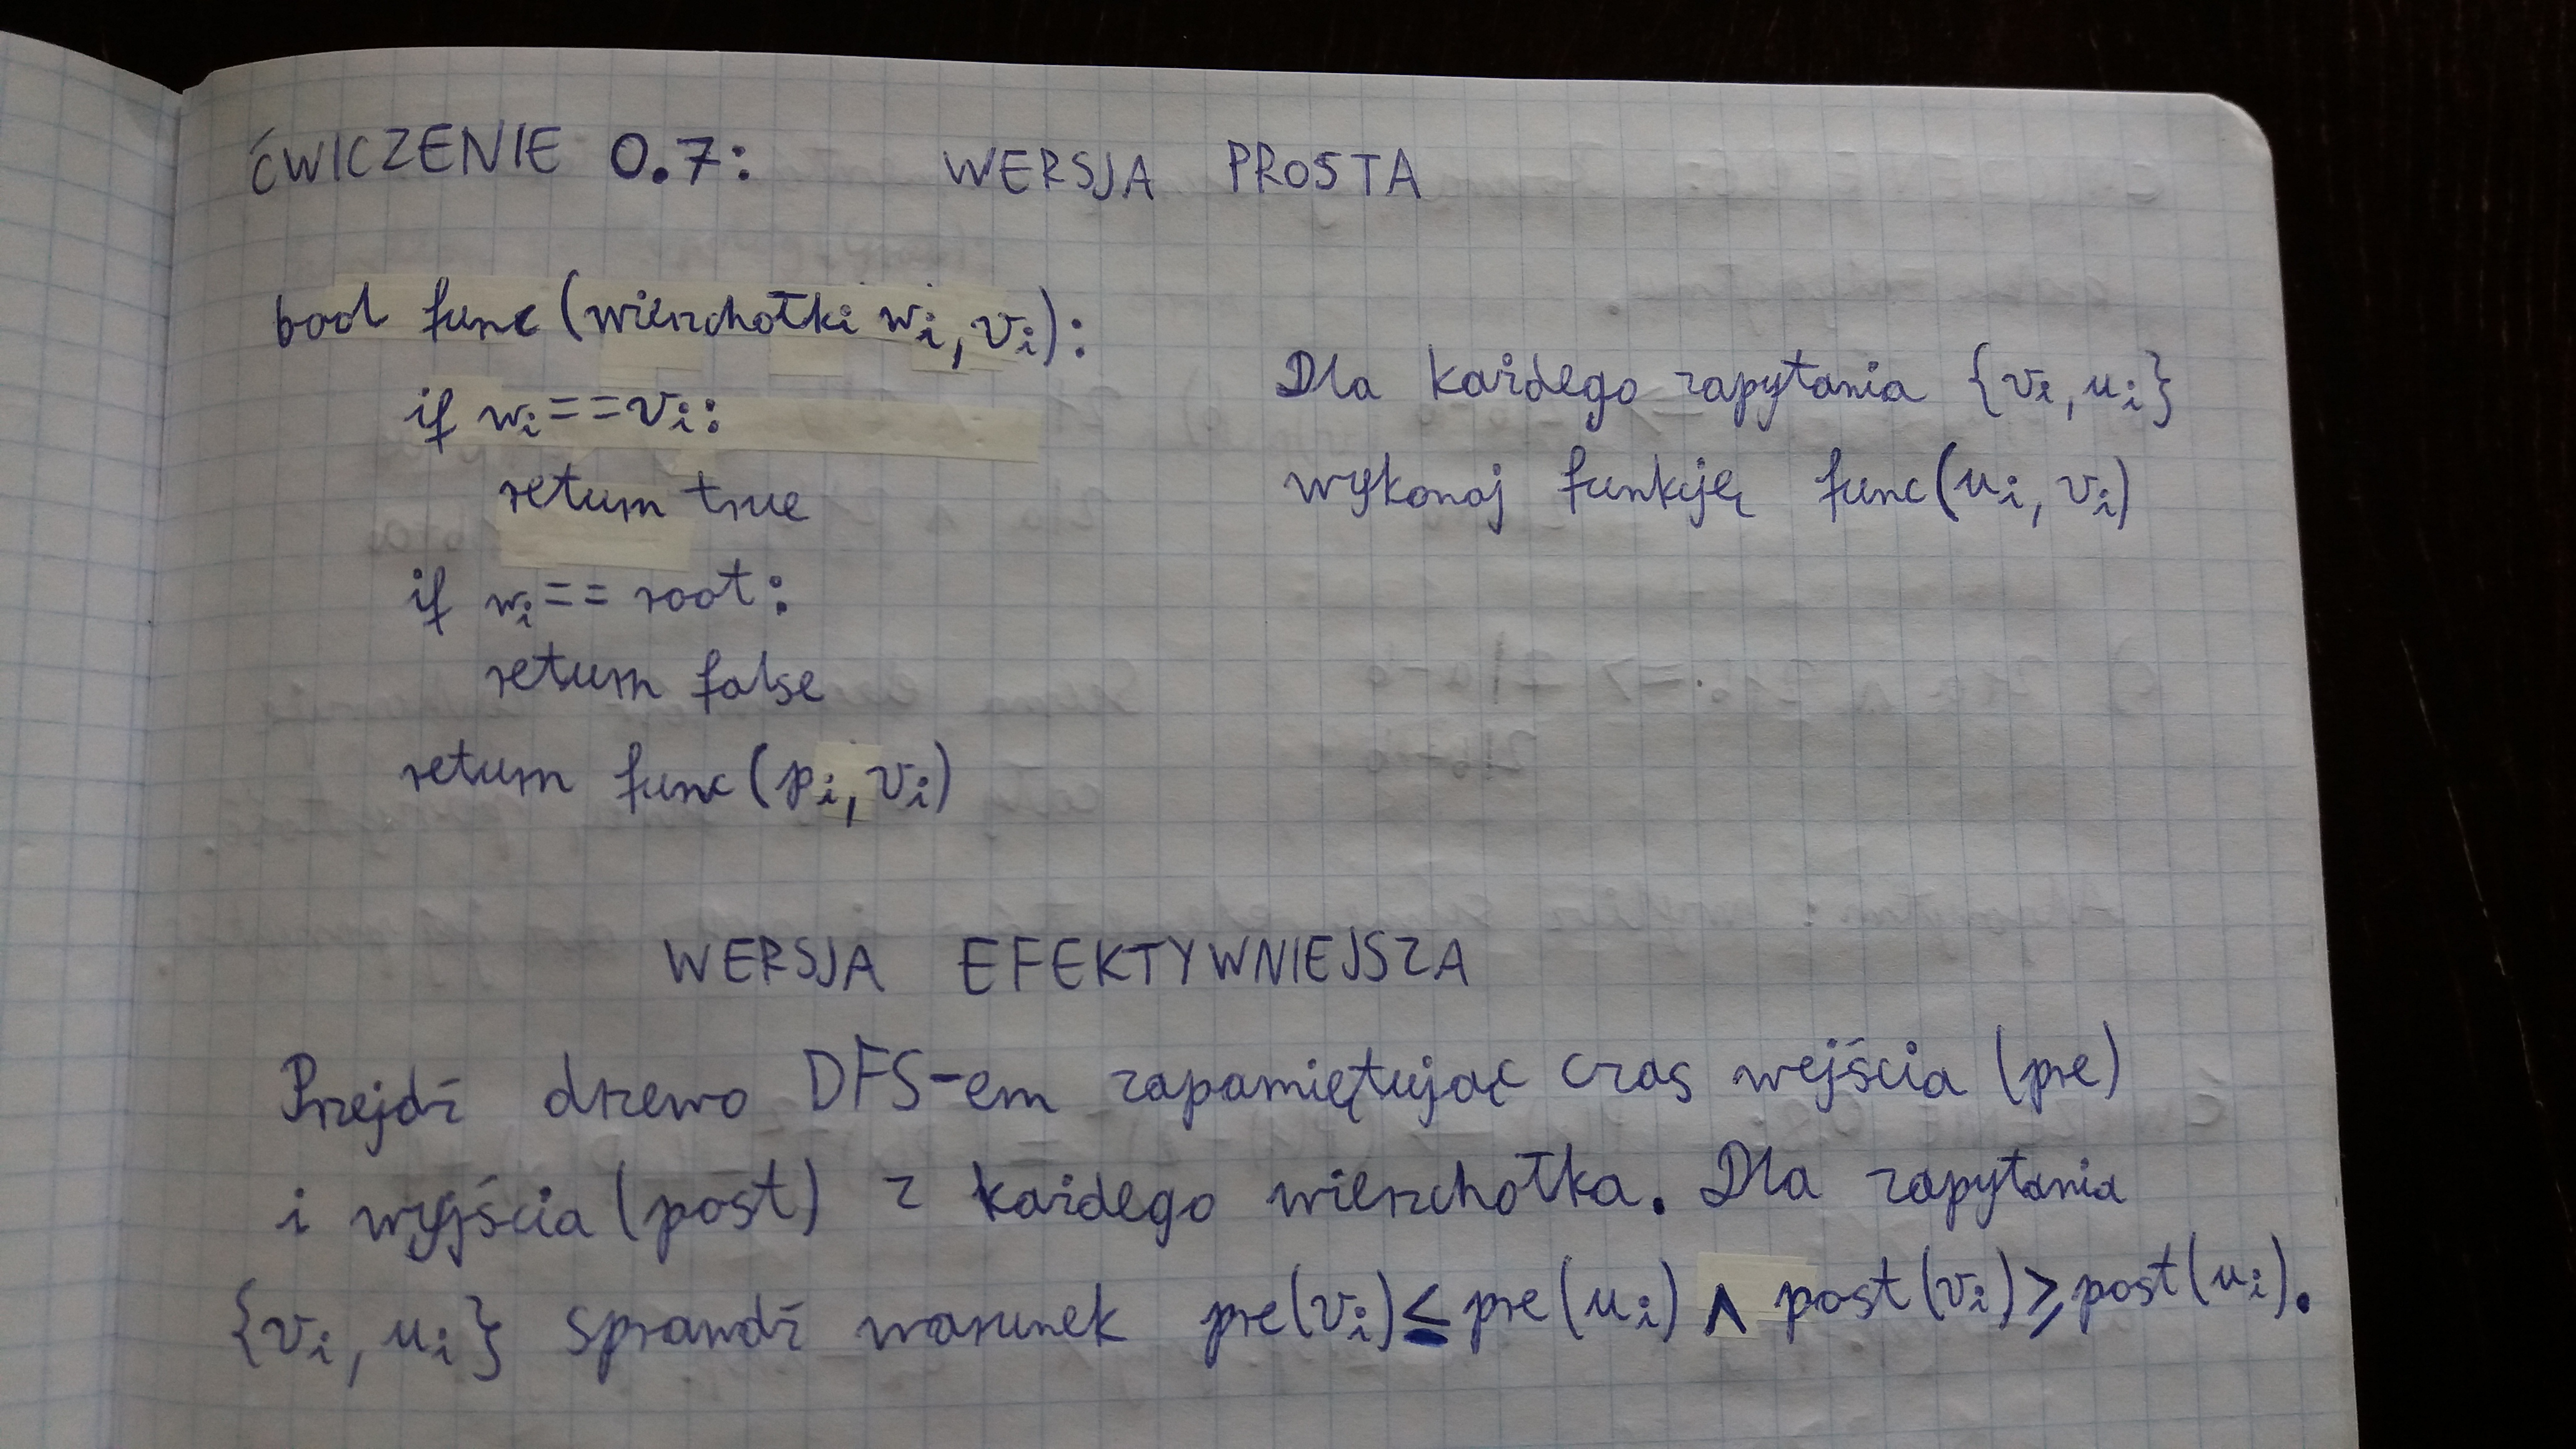 ĆWICZENIE 0.7: WERSJA PROSTA
bool func (wierzchołki wi, vi):
if wi==vi:
return true
if wi== root:
return false
return func (pi, vi)
Dla każdego zapytania {vi, ui}
wykonaj funkcję func(ui, vi)
WERSJA EFEKTYWNIEJSZA
Przejdź drzewo DFS-em zapamiętując czas wejścia (pre)
i wyjścia (post) z każdego wierzchołka. Dla zapytania
{vi, ui} sprawdź warunek pre(vi)≤pre(ui) ∧ post(vi)≥post(ui).